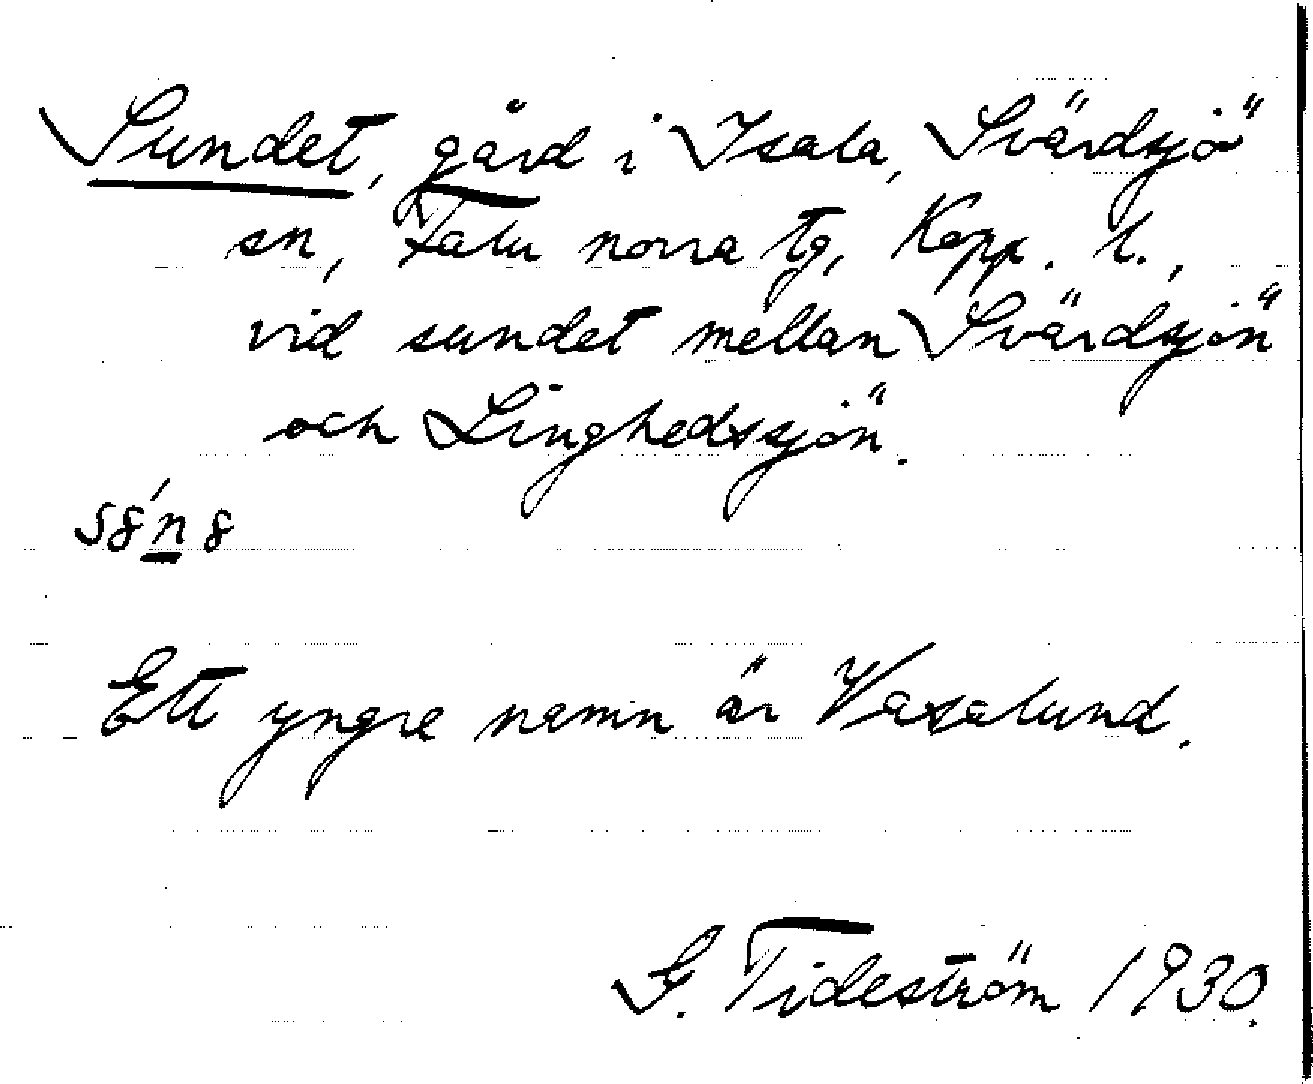 Sundet, gård i Isala, Svärdsjö
sn, Falu norra tg, Kopp. l.,
vid sundet mellan Svärdsjön
och Linghedssjön.
Ett yngre namn är Vasalund.
G. Tideström 1930.